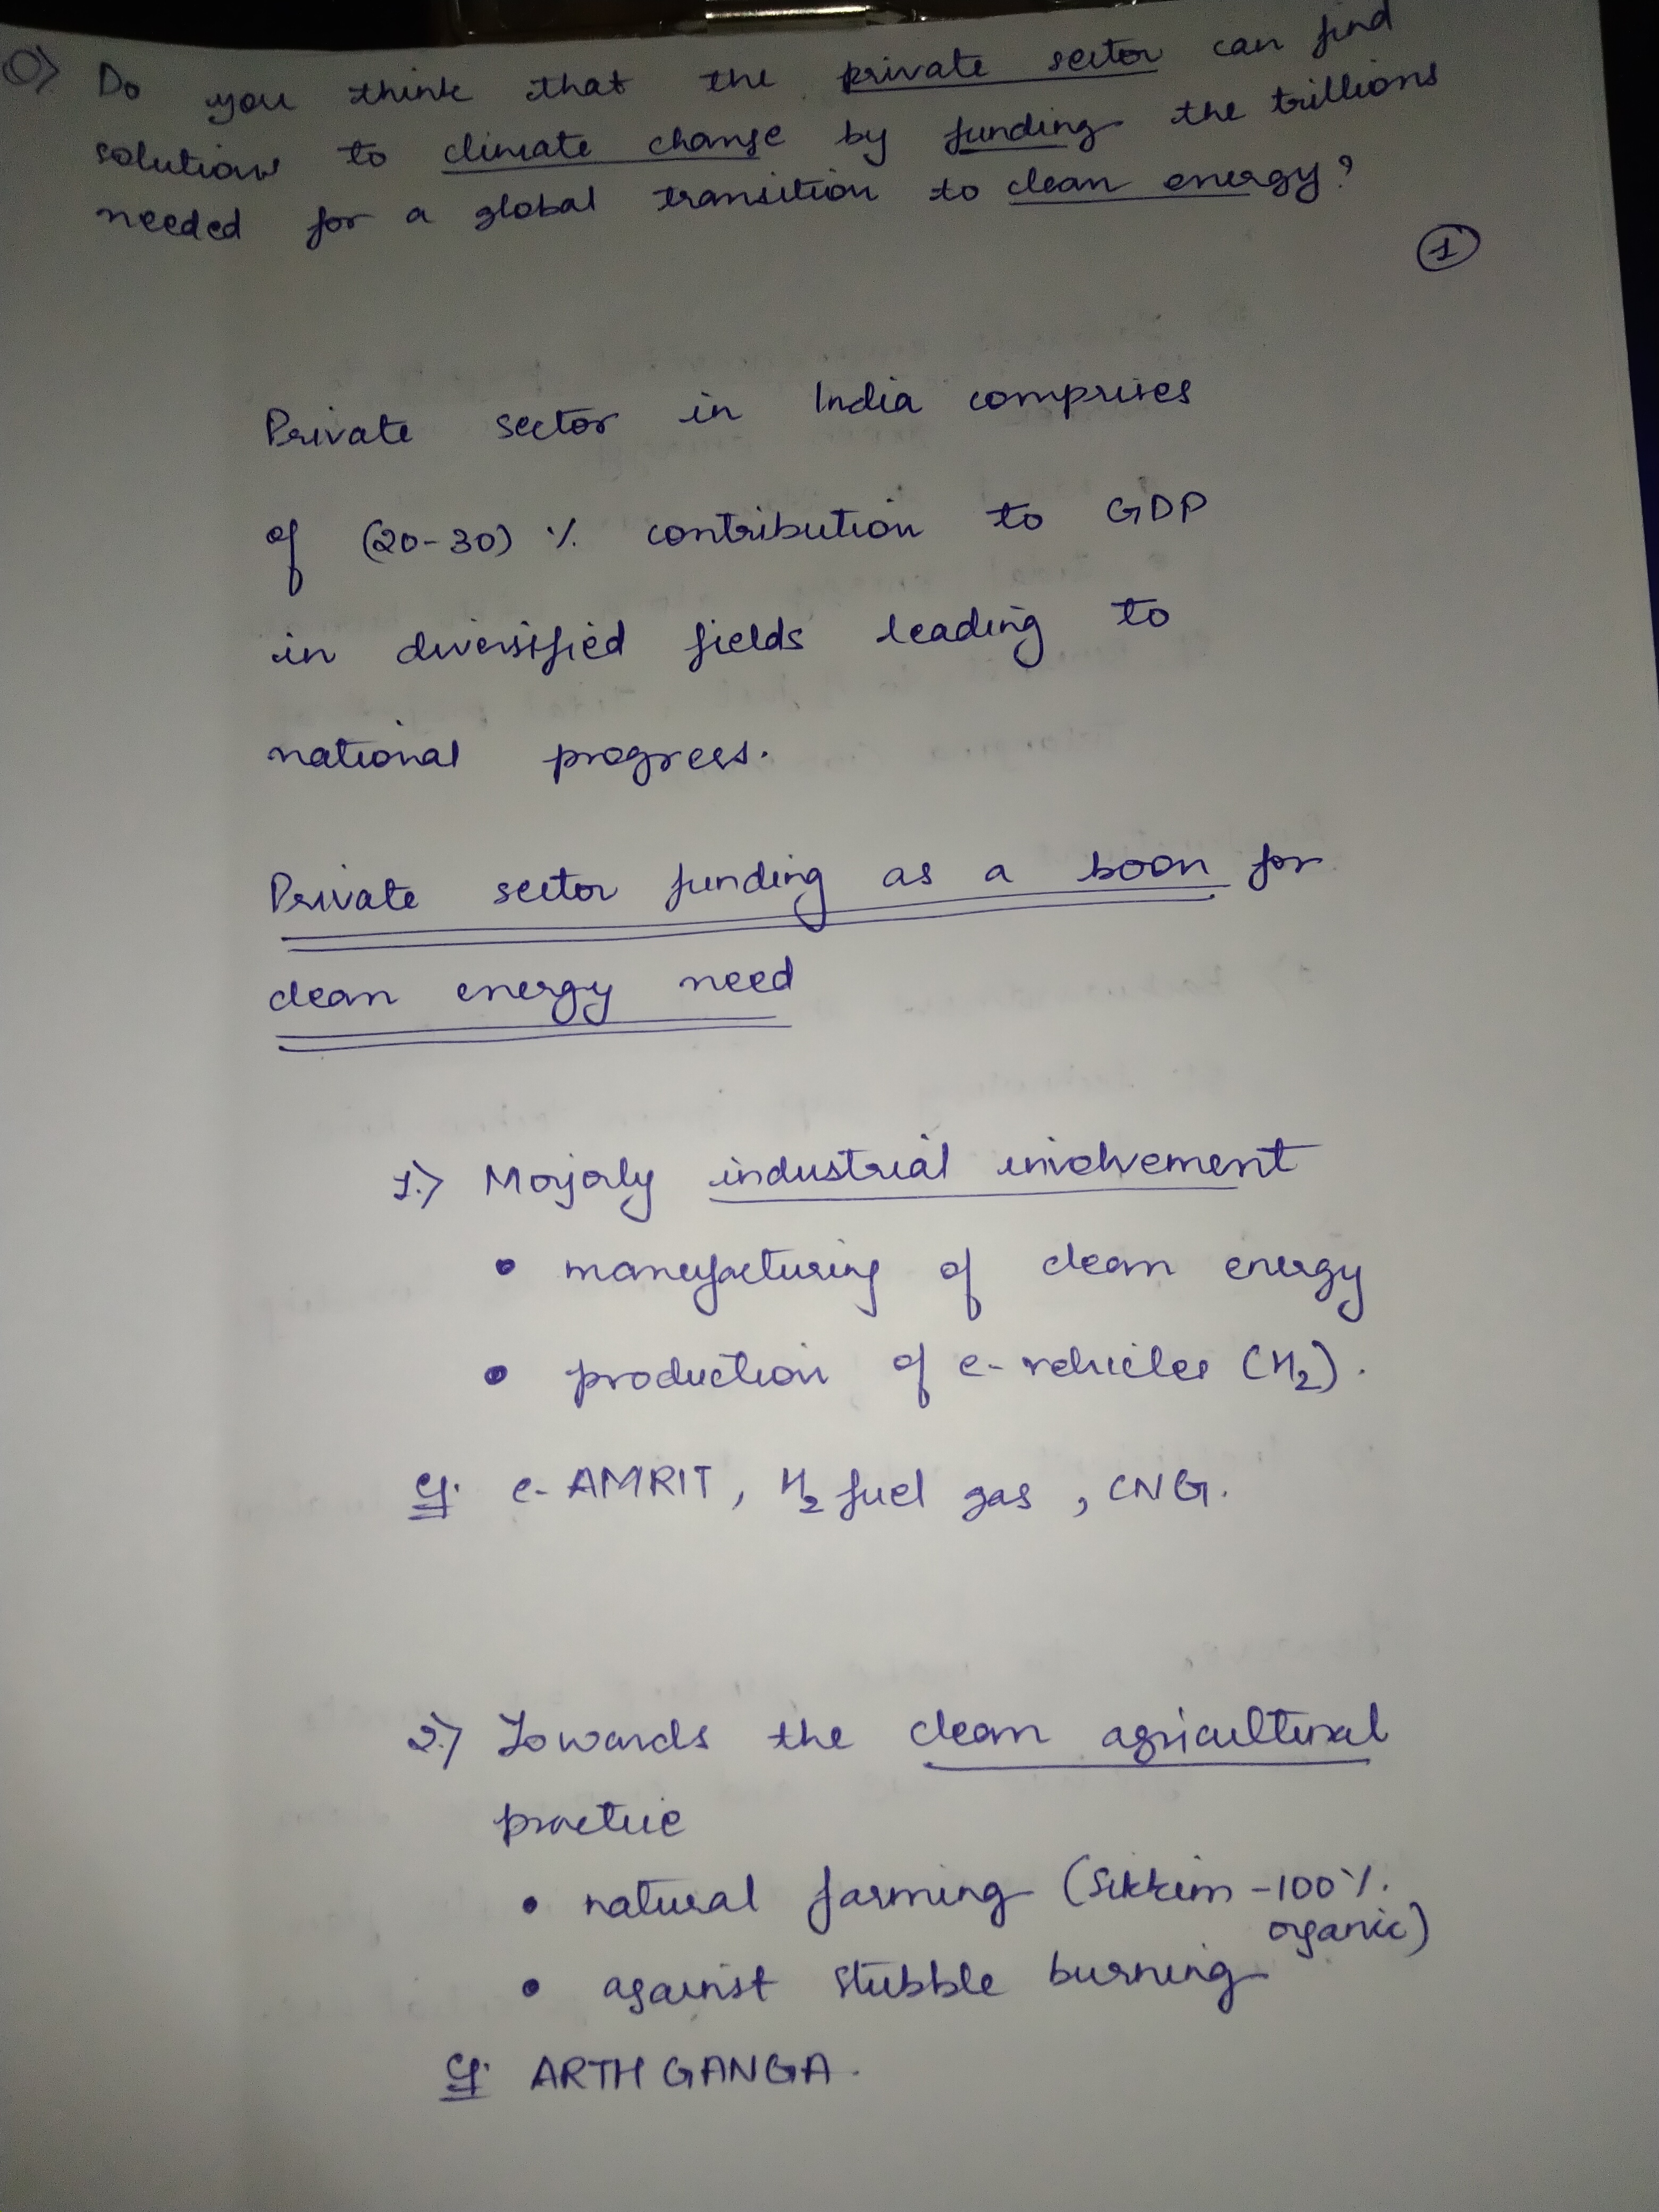 Q> Do you think that the private sector can find
solutions to climate change by funding the trillions
needed for a global transition to clean energy?
1
Private sector in India comprises
of (20-30) % contribution to GDP
in diversified fields leading to
national progress.
Private sector funding as a boon for
clean energy need
1.> Majorly industrial involvement
• manufacturing of clean energy
• production of e-vehicles (H₂).
eg. e-AMRIT, H₂ fuel gas, CNG.
2.> Towards the clean agricultural
practice
• natural farming (Sikkim -100%.
organic)
• against stubble burning
eg. ARTH GANGA.